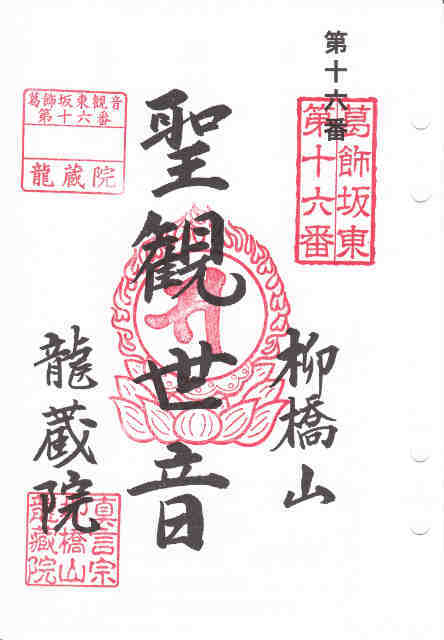 第十六番
葛飾坂東
第十六番
柳橋山
聖観世音
葛飾坂東観音
第十六番
龍蔵院
龍蔵院
真言宗
柳橋山
龍蔵院